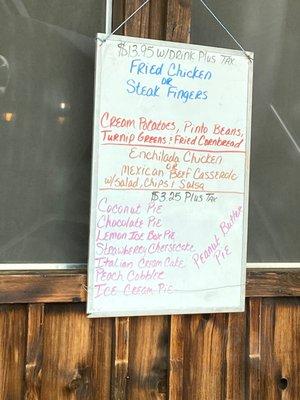 $13.95 w/Drink Plus Tax
Fried Chicken
or
Steak Fingers
Cream Potatoes, Pinto Beans,
Turnip Greens & Fried Cornbread
Enchilada Chicken
or
Mexican Beef Casserole
w/Salad, Chips & Salsa
$3.25 Plus Tax
Coconut Pie
Chocolate Pie
Lemon Ice Box Pie
Strawberry Cheesecake
Italian Cream Cake
Peach Cobbler
Ice Cream Pie
Peanut Butter
Pie